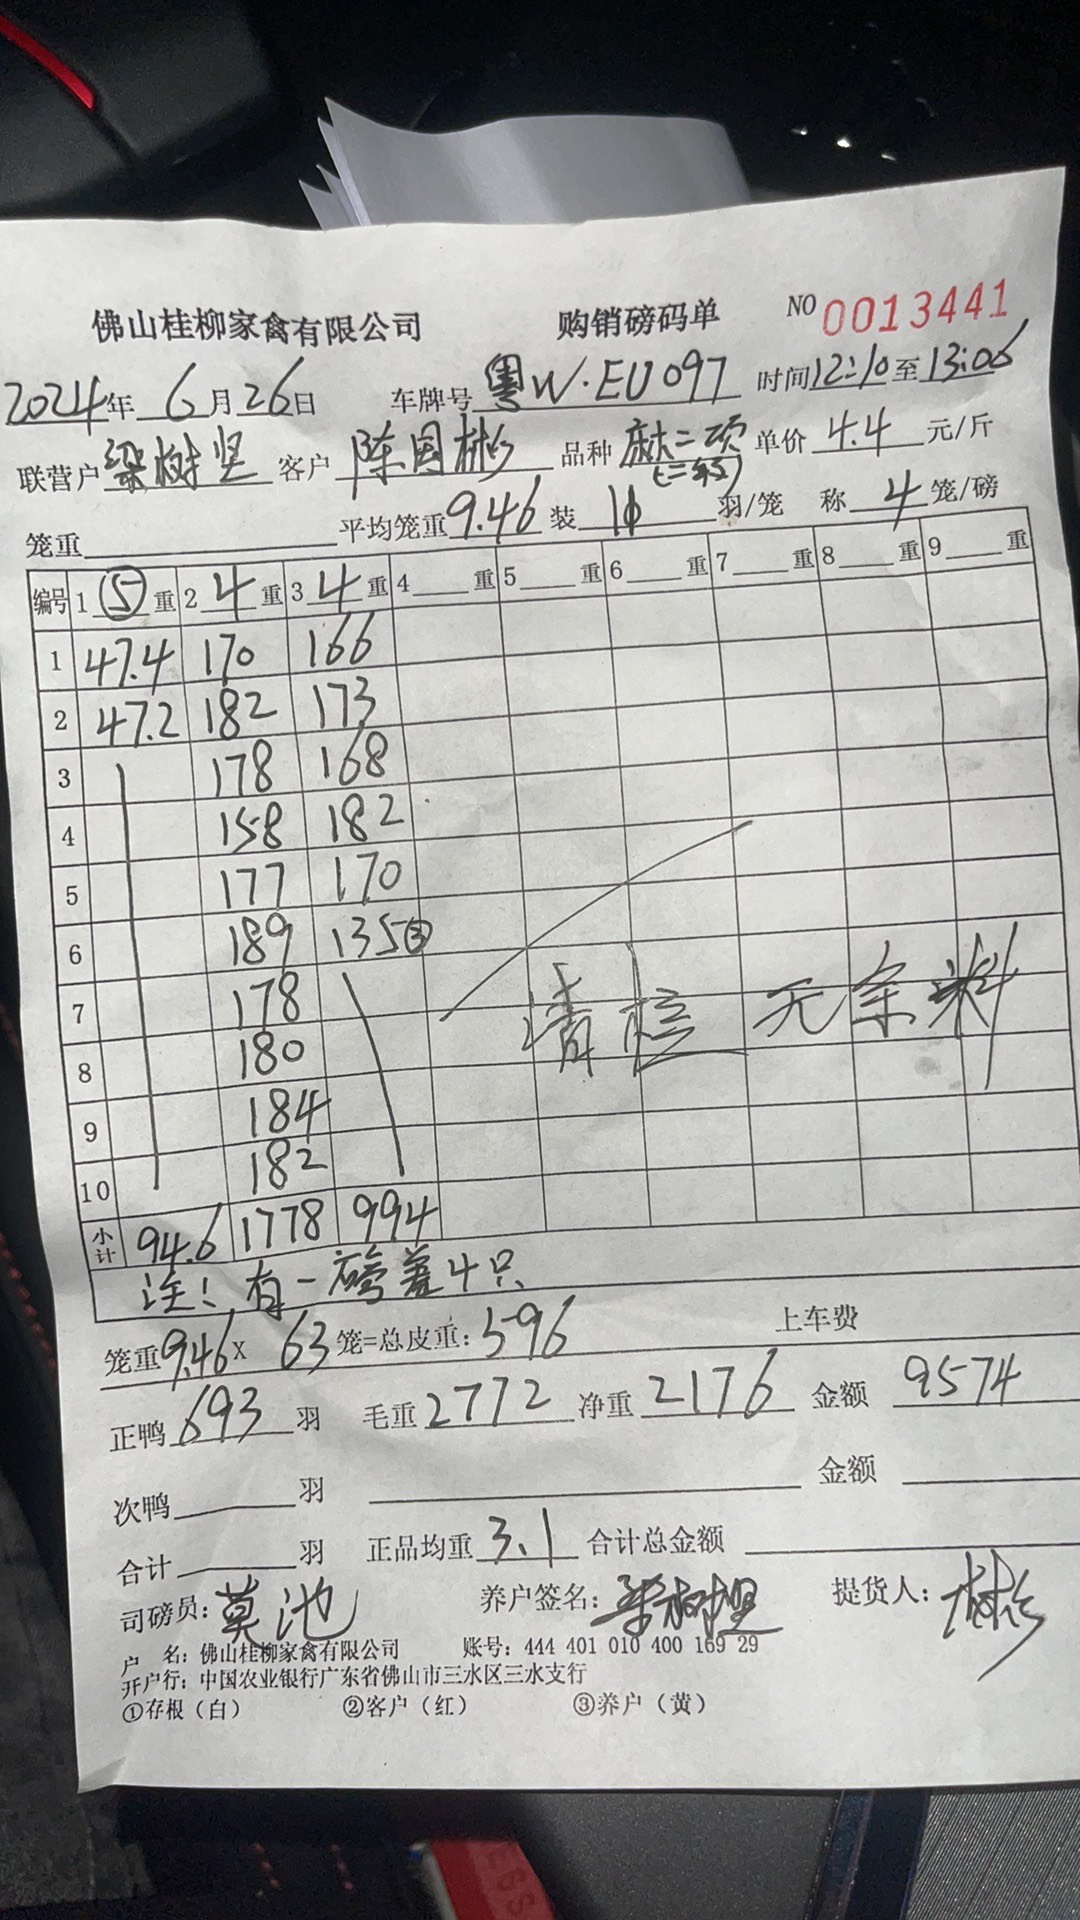 佛山桂柳家禽有限公司 购销磅码单 NO 0013441
2024年 6月26日 车牌号 粤W·EU097 时间12:10至13:06
联营户 梁树坚 客户 陈国彬 品种 麻二项 单价 4.4 元/斤
笼重 平均笼重9.46 装 11 羽/笼 称 4 笼/磅
编号 1 ⑤ 重 2 4 重 3 4 重 4 重 5 重 6 重 7 重 8 重 9 重
1 47.4 170 166
2 47.2 182 173
3 178 168
4 158 182
5 177 170
6 189 135③
7 178
8 180
9 184
10 182
清栏 无余料
小计 94.6 1778 994
注! 有一磅差4只
笼重9.46x 63笼=总皮重: 596 上车费
正鸭 693 羽 毛重 2772 净重 2176 金额 9574
次鸭 羽 金额
合计 羽 正品均重 3.1 合计总金额
司磅员: 莫池 养户签名: 梁树坚 提货人:
户 名: 佛山桂柳家禽有限公司 账号: 444 401 010 400 169 29
开户行: 中国农业银行广东省佛山市三水区三水支行
①存根（白） ②客户（红） ③养户（黄）